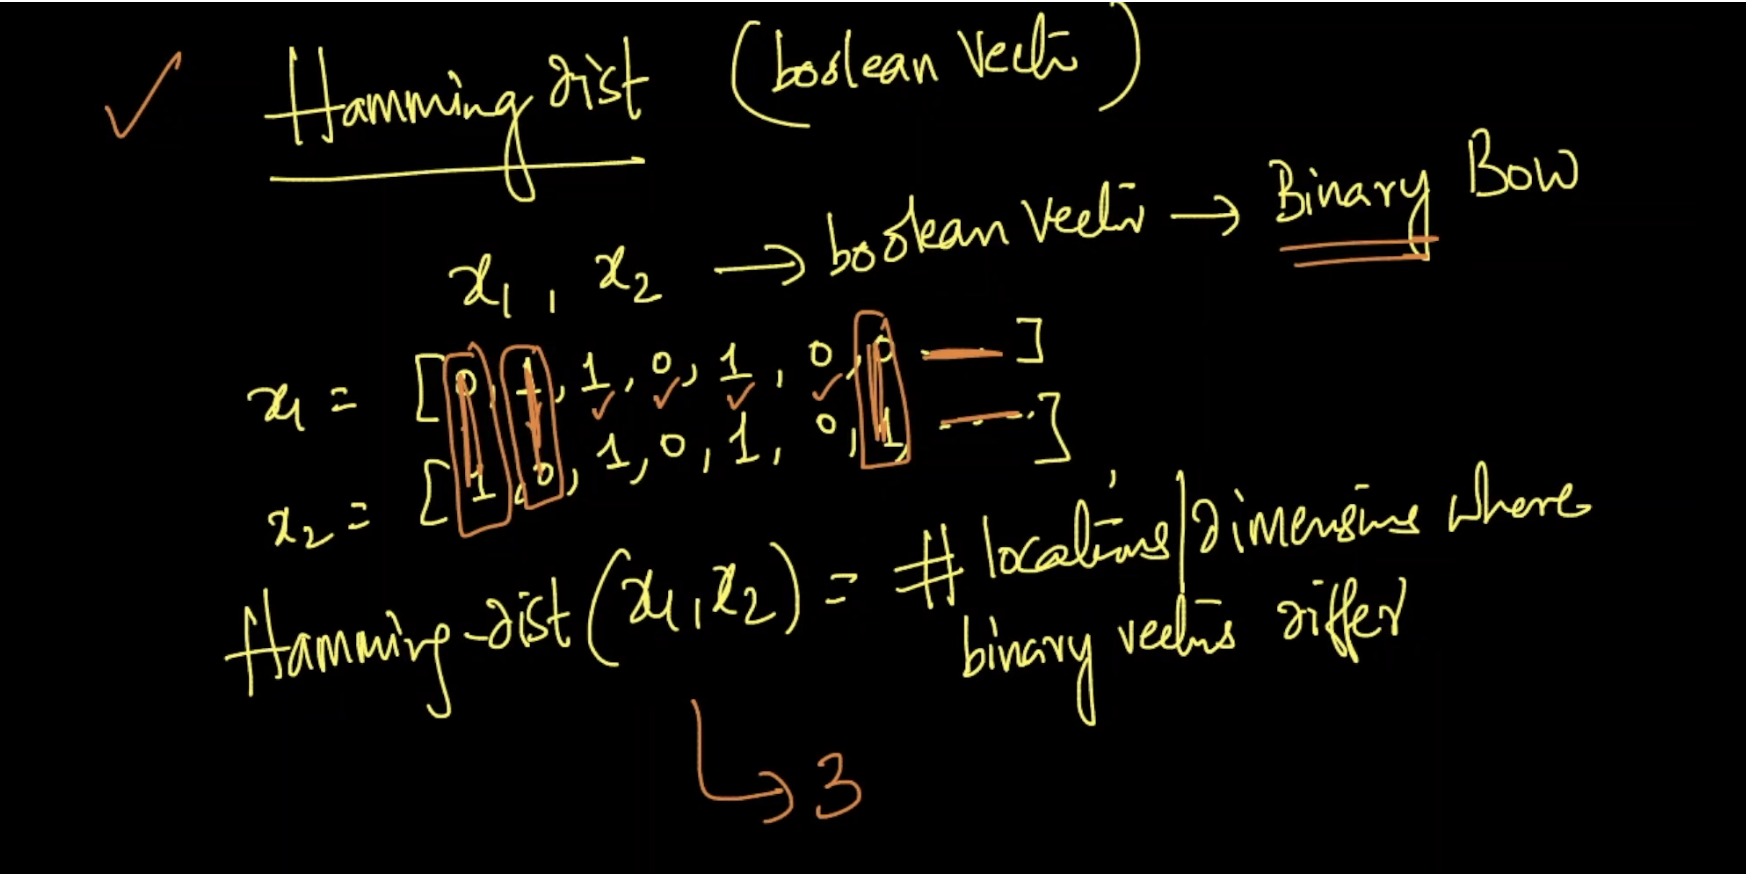 Hamming dist (boolean vector)
x1, x2 → boolean vector → Binary BOW
x1 = [0, 1, 1, 0, 1, 0, 0 ----- ]
x2 = [1, 0, 1, 0, 1, 0, 1, - - - - ]
Hamming-dist(x1, x2) = # locations/dimensions where
binary vectors differ
↳ 3